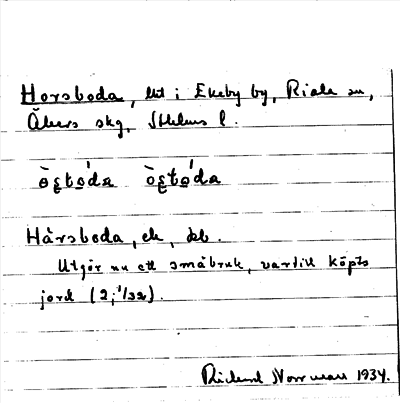 Horsboda, lht i Ekeby by, Riala sn,
Åkers skg, Sthlms l.
Hårsboda, ek, kb.
Utgör nu ett småbruk, vartill köpts
jord (2; 1/32).
Rickard Norrman 1934.